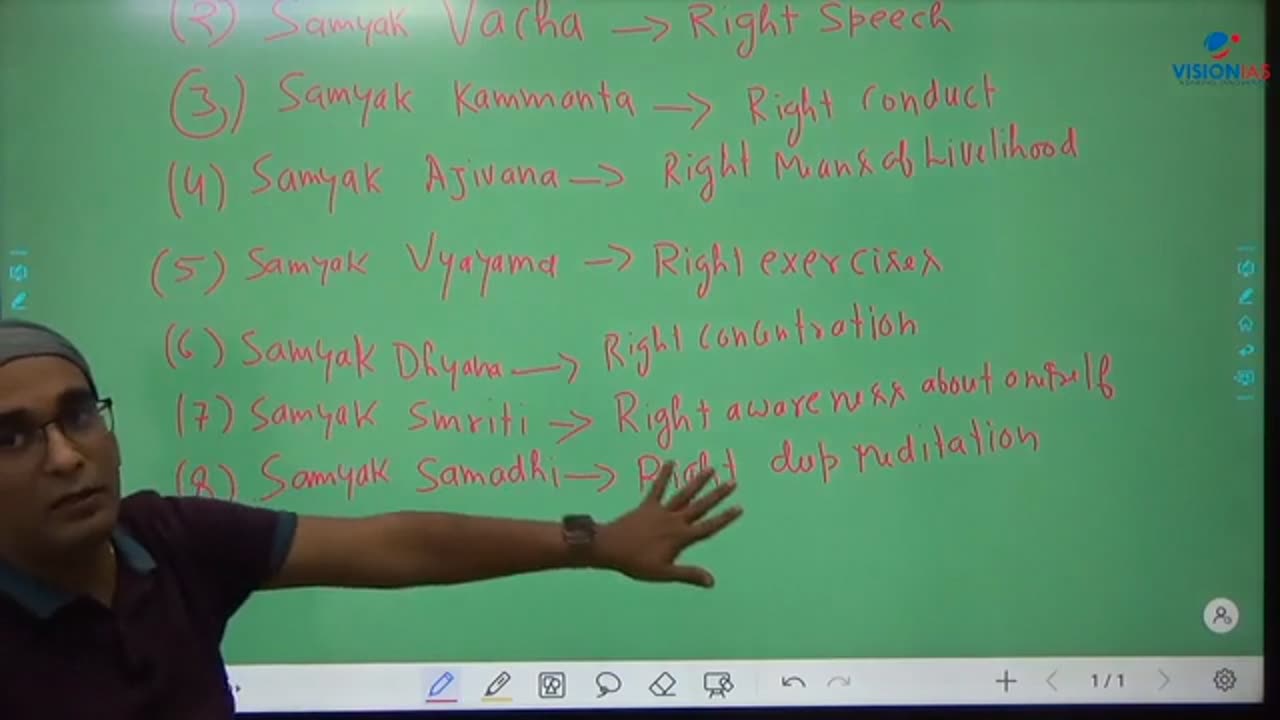 (2) Samyak Vacha → Right Speech
VISIONIAS
(3) Samyak Kammanta → Right Conduct
(4) Samyak Ajivana → Right Means of Livelihood
(5) Samyak Vyayama → Right exercises
(6) Samyak Dhyana → Right Concntration
(7) Samyak Smriti → Right awareness about oneself
(8) Samyak Samadhi → Right deep meditation
1/1